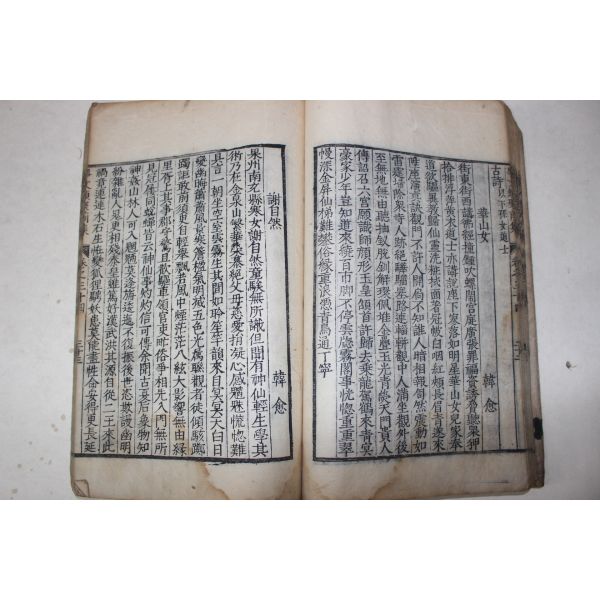 華山女 韓愈
街東街西講佛經撞鐘吹螺鬧宮庭廣張罪福資誘脅聽衆狎
恰排浮萍黃衣道士亦講說座下寥落如明星華山女兒家奉
道欲驅異教歸仙靈洗粧拭面著冠帔白咽紅頰長眉青遂來
陞座演真訣觀門不許人開扃不知誰人暗相報訇然震動如
雷霆掃除衆寺人跡絕驊騮塞路連輜軿觀中人滿坐觀外後
至無地無由聽抽釵脫釧解環佩堆金疊玉光青熒天門貴人
傳詔召六宮願識師顔形玉皇頷首許歸去乘龍駕鶴來青冥
豪家少年豈知道來繞百匝脚不停雲窓霧閣事慌惚重重翠
幔深金屏仙梯難攀俗緣重浪憑青鳥通丁寧
謝自然 韓愈
果州南充縣寒女謝自然童騃無所識但聞有神仙輕生學其
術乃在金泉山繁華榮慕絕父母慈愛捐凝心感魑魅慌惚難
具言一朝坐空室雲霧生其間如聆笙竽韻來自冥冥天白日
變幽晦蕭蕭風景寒簷楹氣明滅五色光屬聯觀者徒傾駭躑
躅詎敢前須臾自輕舉飄若風中煙茫茫八紘大影響無由緣
里胥上其事郡守驚且歎驅車領官吏甿俗爭相先入門無所
見冠履同蛻蟬皆云神仙事灼灼信可傳余聞古夏后象物知
神姦山林人可入魍魎莫逢旃逶迤不復振後世恣欺謾幽明
紛雜亂人鬼更相殘秦皇雖篤好漢武洪其源自從二主來此
禍竟連連木石生怪變狐狸騁妖患莫能盡性命安得更長延